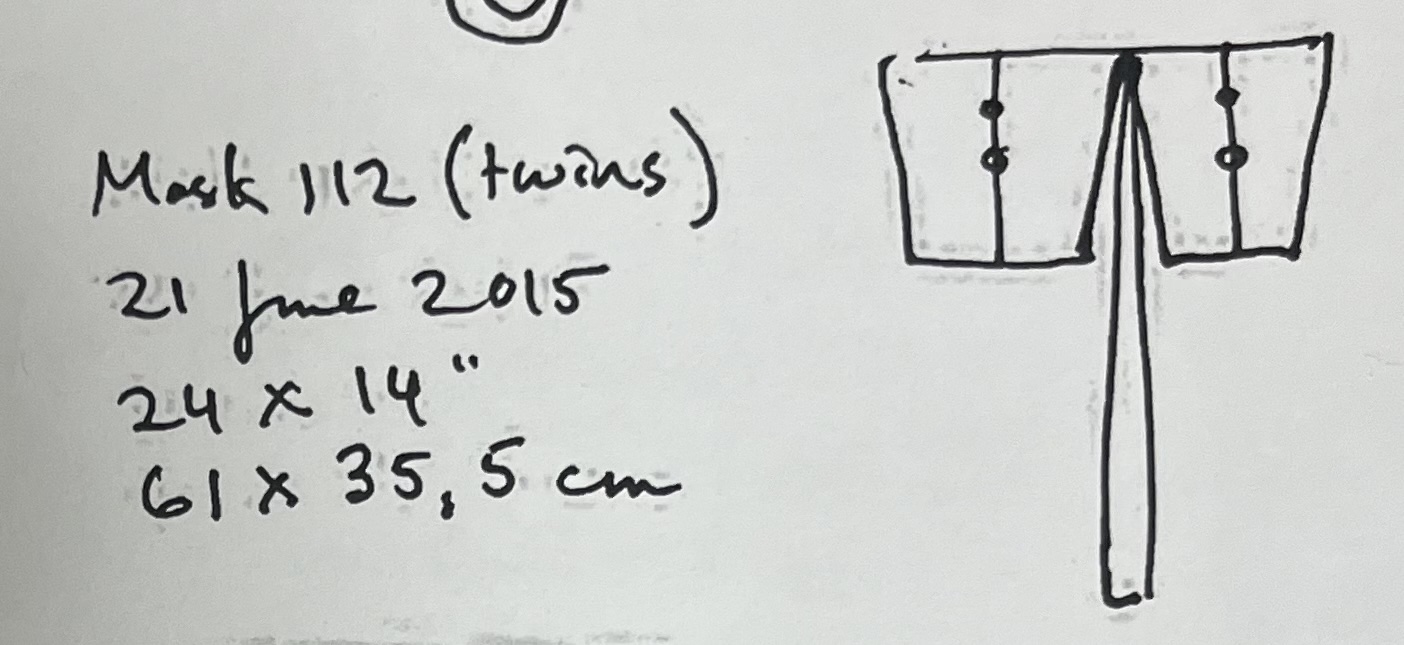 Mask 112 (twins)
21 June 2015
24 x 14"
61 x 35,5 cm